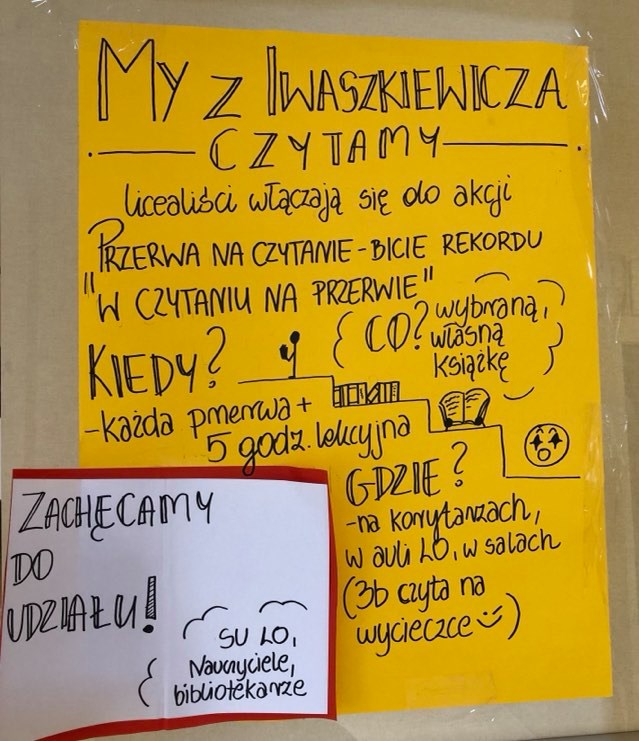 MY Z IWASZKIEWICZA
CZYTAMY
licealiści włączają się do akcji
"PRZERWA NA CZYTANIE - BICIE REKORDU
W CZYTANIU NA PRZERWIE"
KIEDY?
-każda przerwa +
5 godz. lekcyjna
CO? wybraną,
własną
książkę
GDZIE?
-na korytarzach,
w auli LO, w salach
(3b czyta na
wycieczce)
ZACHĘCAMY
DO
UDZIAŁU!
SU LO,
Nauczyciele,
bibliotekarze